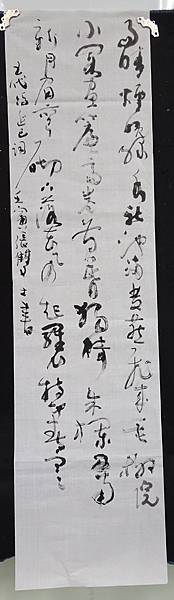 雨晴烟晚绿水新池满双燕飞来垂柳院
小阁画帘高卷黄昏独倚朱栏西南
新月眉弯砌下落花风起罗衣特地春寒
五代冯延巳词